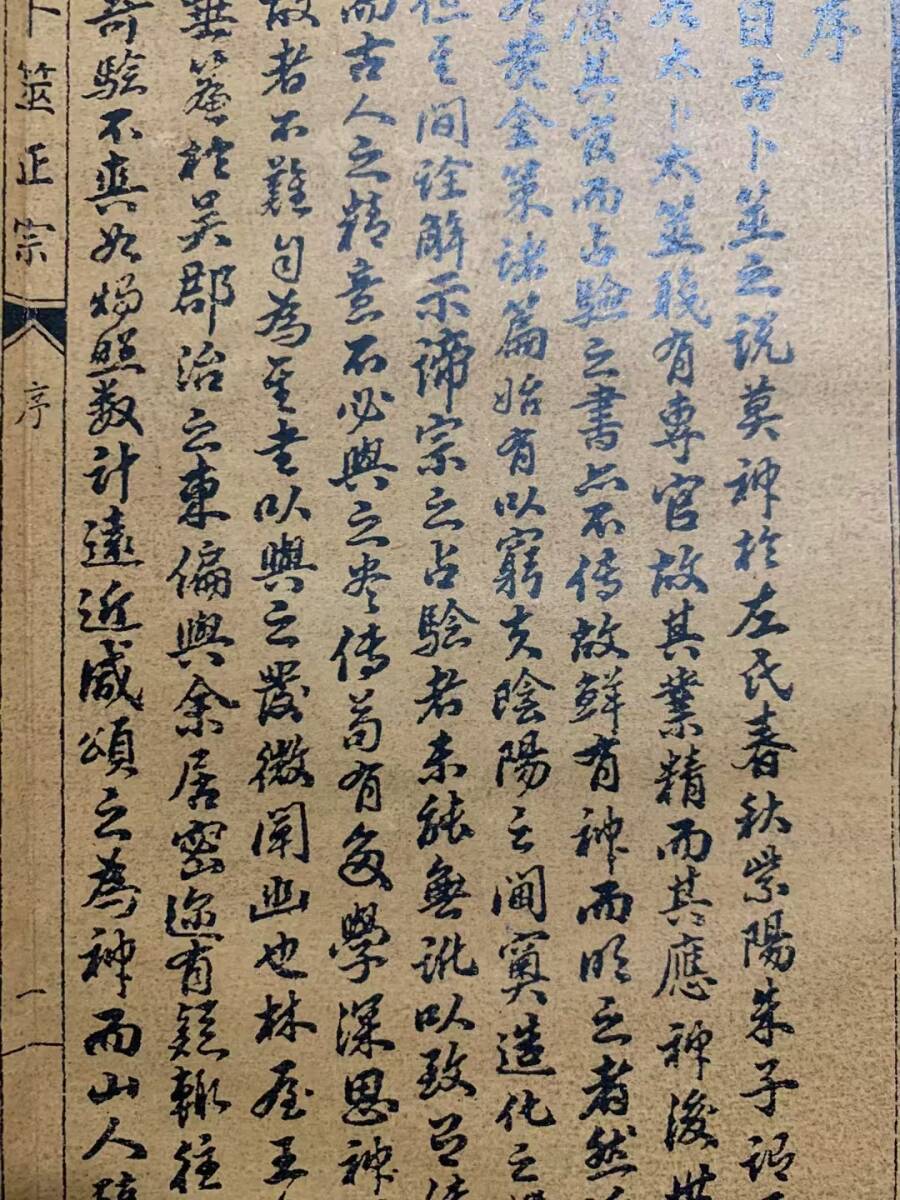 序
自古卜筮之説莫神於左氏春秋紫陽朱子謂
太卜太筮職有專官故其業精而其應神後世
廢其官而占驗之書亦不傳故鮮有神而明之者然
黄金策諸篇始有以窮夫陰陽之閫奥造化之
但其間詮解示諦宗之占驗者未能無訛以致
而古人之精意不必與之盡傳苟有好學深思神
故者不難自為筆者以與之發微闡幽也林屋王
垂簾於吴郡治之東偏與余居密邇有疑輒往
奇驗不爽如燭照数計遠近咸頌之為神而山人
卜筮正宗
序
一